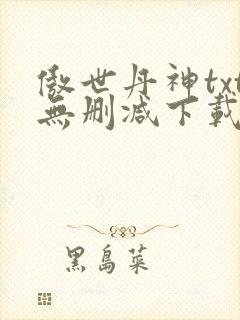 傲世丹神txt
無删减下載
黑島菜